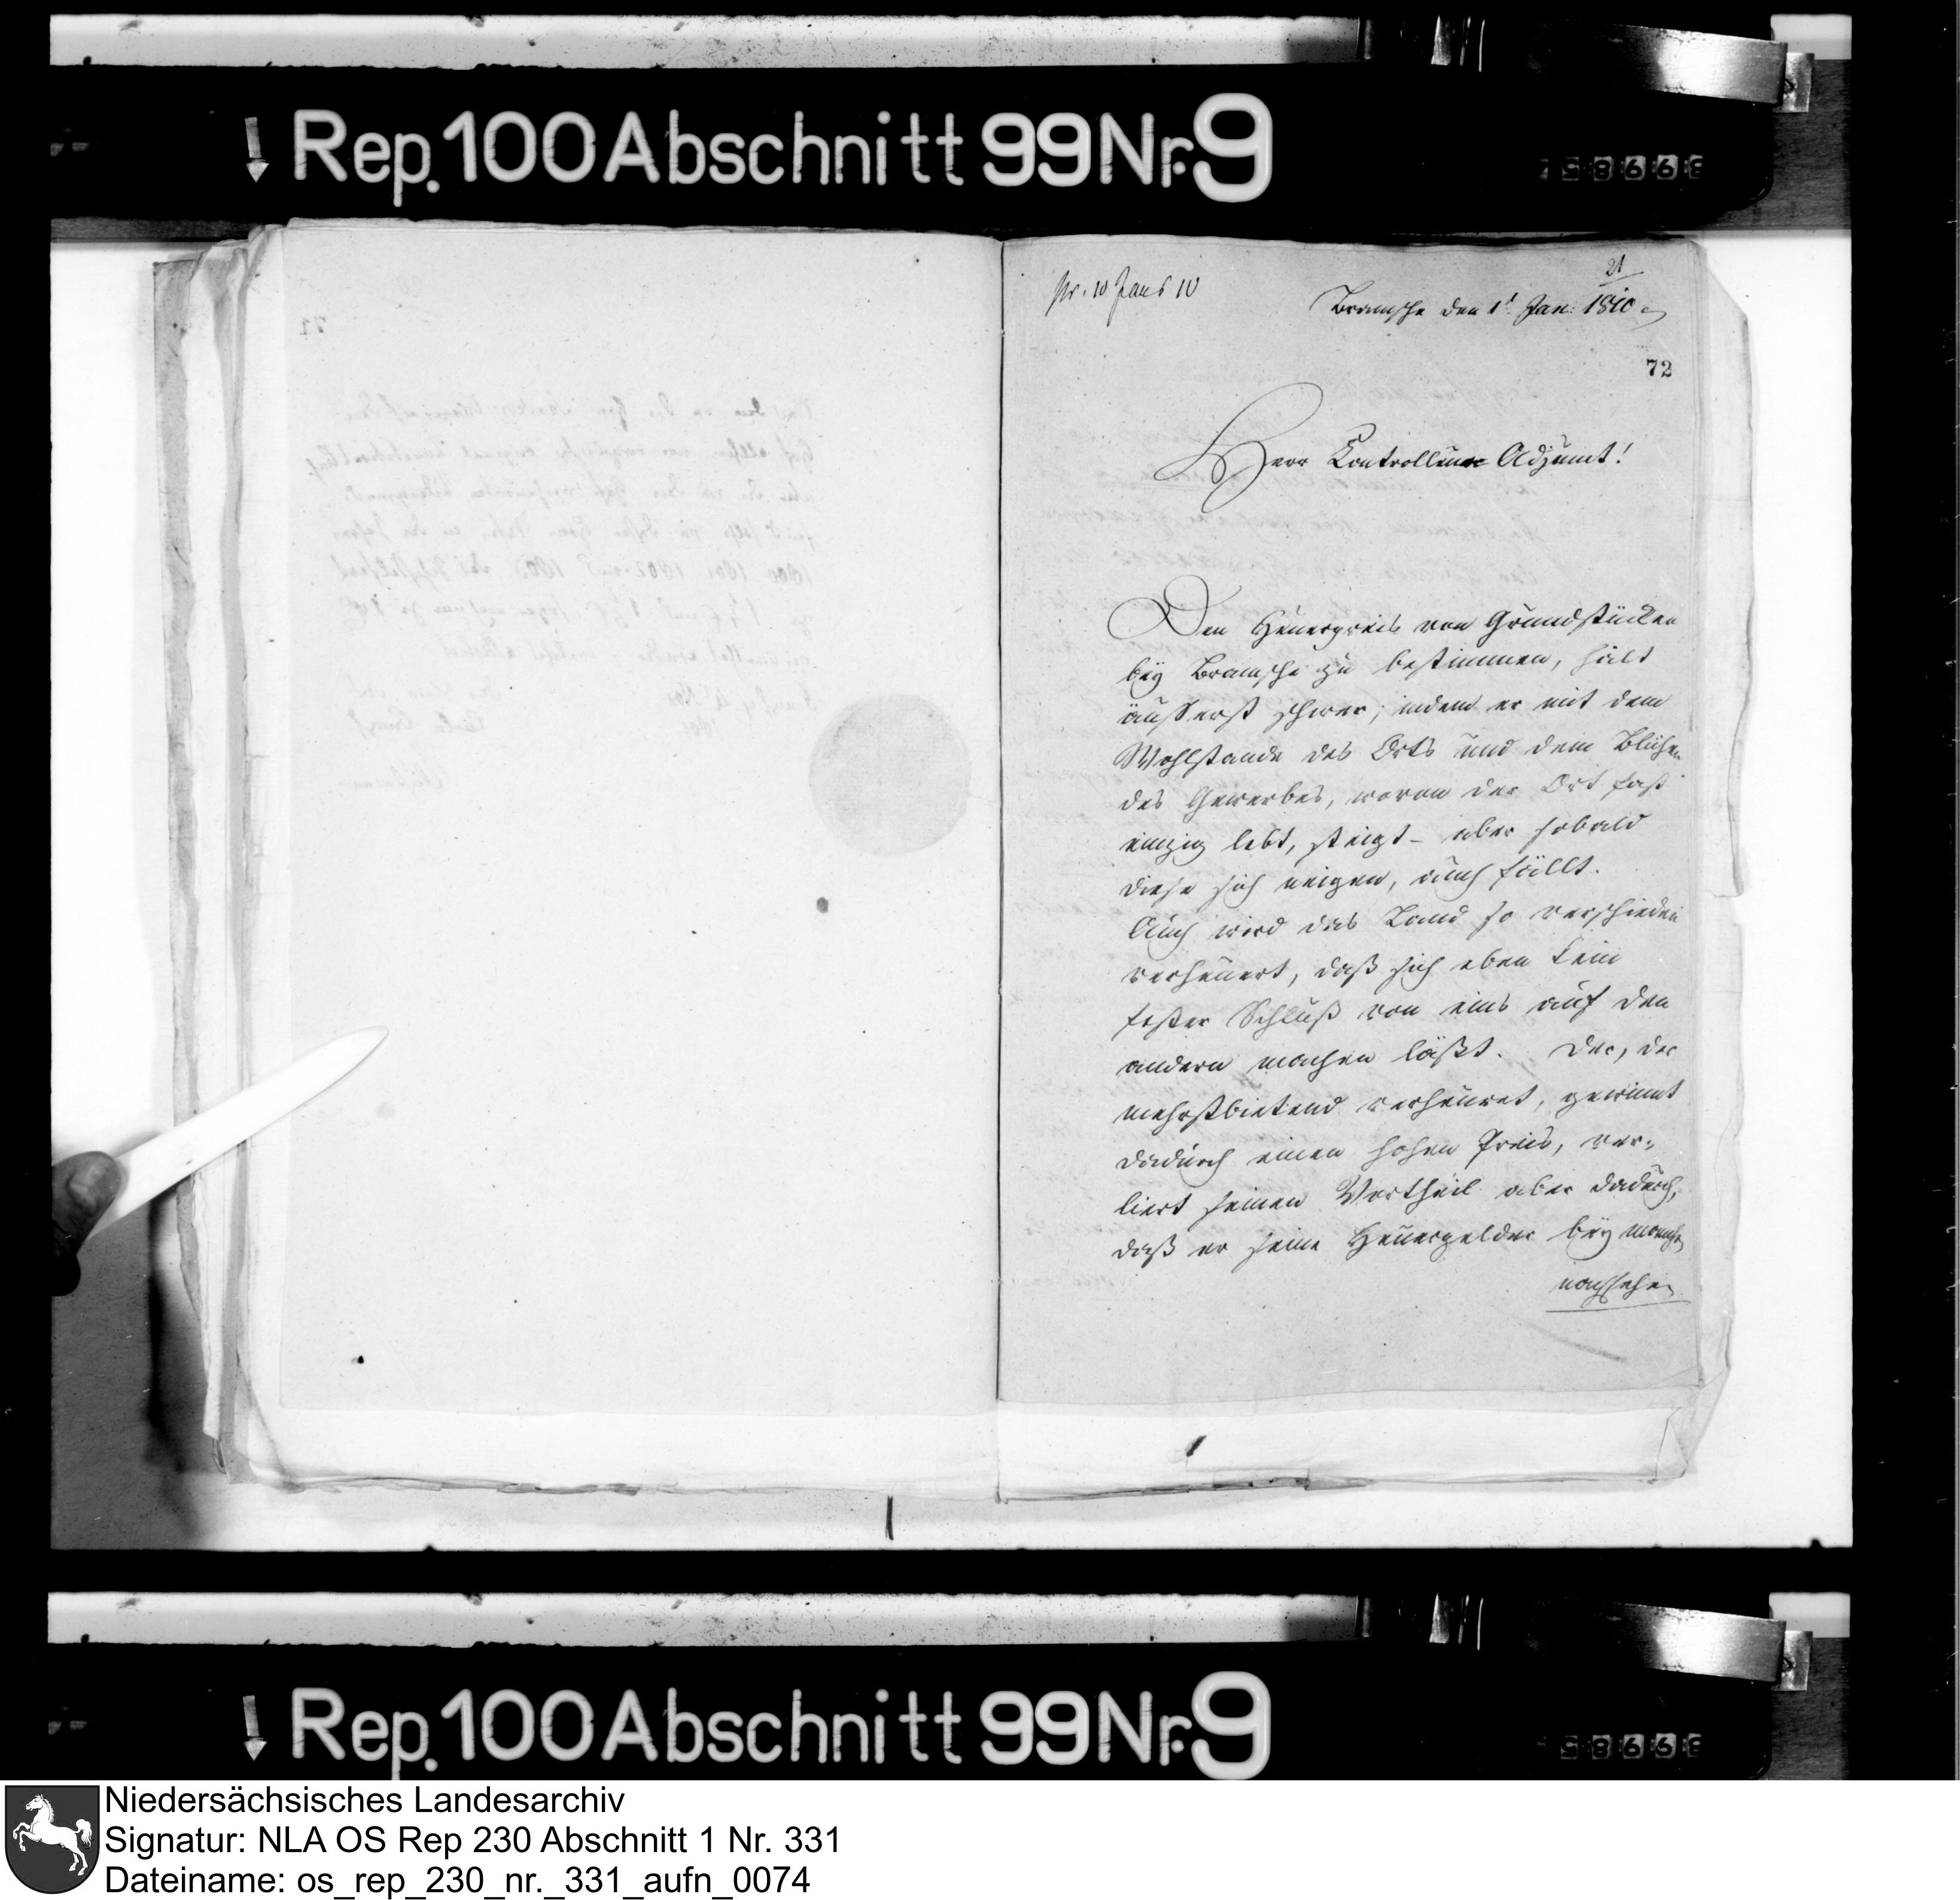 Rep. 100 Abschnitt 99 Nr. 9
pr. 10 Jan 10
21
Bramsche den 1t Jan: 1810.
72
Herr Controlleur Adjunct!
Den Heuerpreis von Grundstücken
bey Bramsche zu bestimmen, hält
äusserst schwer; indem er mit dem
Wohlstande des Orts und dem Blühen
des Gewerbes, wovon der Ort fast
einzig lebt, steigt - aber sobald
diese sich neigen, auch fällt.
Auch wird das Land so verschieden
verheuert, daß sich eben kein
fester Schluß von eins auf den
andern machen läßt. Der, der
mehrstbietend verheuret, gewinnt
dadurch einen hohen Preis, ver-
liert seinen Vortheil aber dadurch,
daß er seine Heuergelder bey manchen
nachsehen
Rep. 100 Abschnitt 99 Nr. 9
Niedersächsisches Landesarchiv
Signatur: NLA OS Rep 230 Abschnitt 1 Nr. 331
Dateiname: os_rep_230_nr._331_aufn_0074